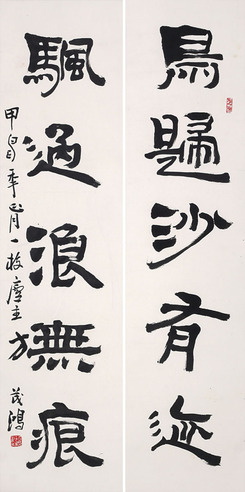 鳥歸沙有迹
颿過浪無痕
甲季月一枝廬主方茂鴻